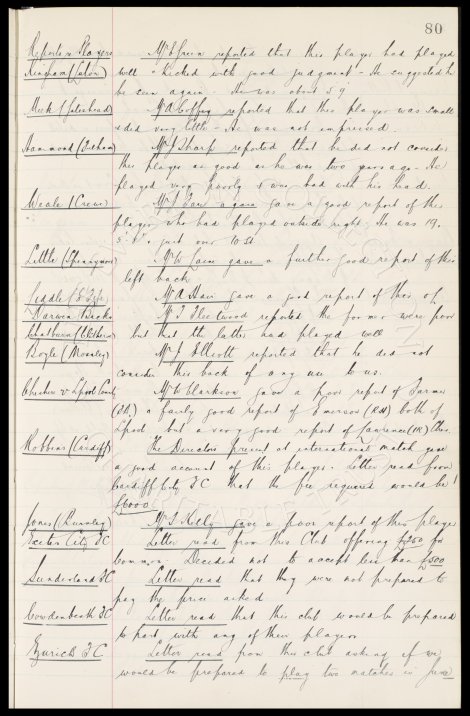 80
Reports re Players Mr Green reported that this player had played
Bingham (Luton) well & kicked with good judgment - He suggested he
be seen again. He was about 5' 9"
Meek (Gateshead) Mr A Coffey reported that this player was small
& did very little - He was not impressed.
Hammond (Fulham) Mr J Sharp reported that he did not consider
this player as good as he was two years ago. He
played very poorly & was bad with his head.
Weale (Crewe) Mr again gave a good report of this
player who had played outside right. He was 19,
5' & just over 10 st
Little (Spennymoor) Mr W gave a further good report of this
left back
Liddle (E Fife) Mr A gave a good report of this o/l
Darwen Backs Mr T Fleetwood reported the former were poor
Chatburn (Clitheroe) but that the latter had played well
Boyle (Mossley) Mr J Elliott reported that he did not
consider this back of any use to us.
Chester v Lpool County Mr W Clarkson gave a poor report of
a fairly good report of Emerson (RH) both of
Lpool but a very good report of Lawrence (IR) Ches.
Robbins (Cardiff) The Directors present at international match gave
a good account of this player. Letter read from
Cardiff City FC that the fee required would be
£6000
Jones (Runsley) Mr T Kelly gave a poor report of this player
Exeter City FC Letter read from this Club offering £250 for
Decided not to accept less than £500
Sunderland FC Letter read that they were not prepared to
pay the price asked
Cowdenbeath FC Letter read that this club would be prepared
to part with any of their players
Zurich FC Letter read from this club asking if we
would be prepared to play two matches in June